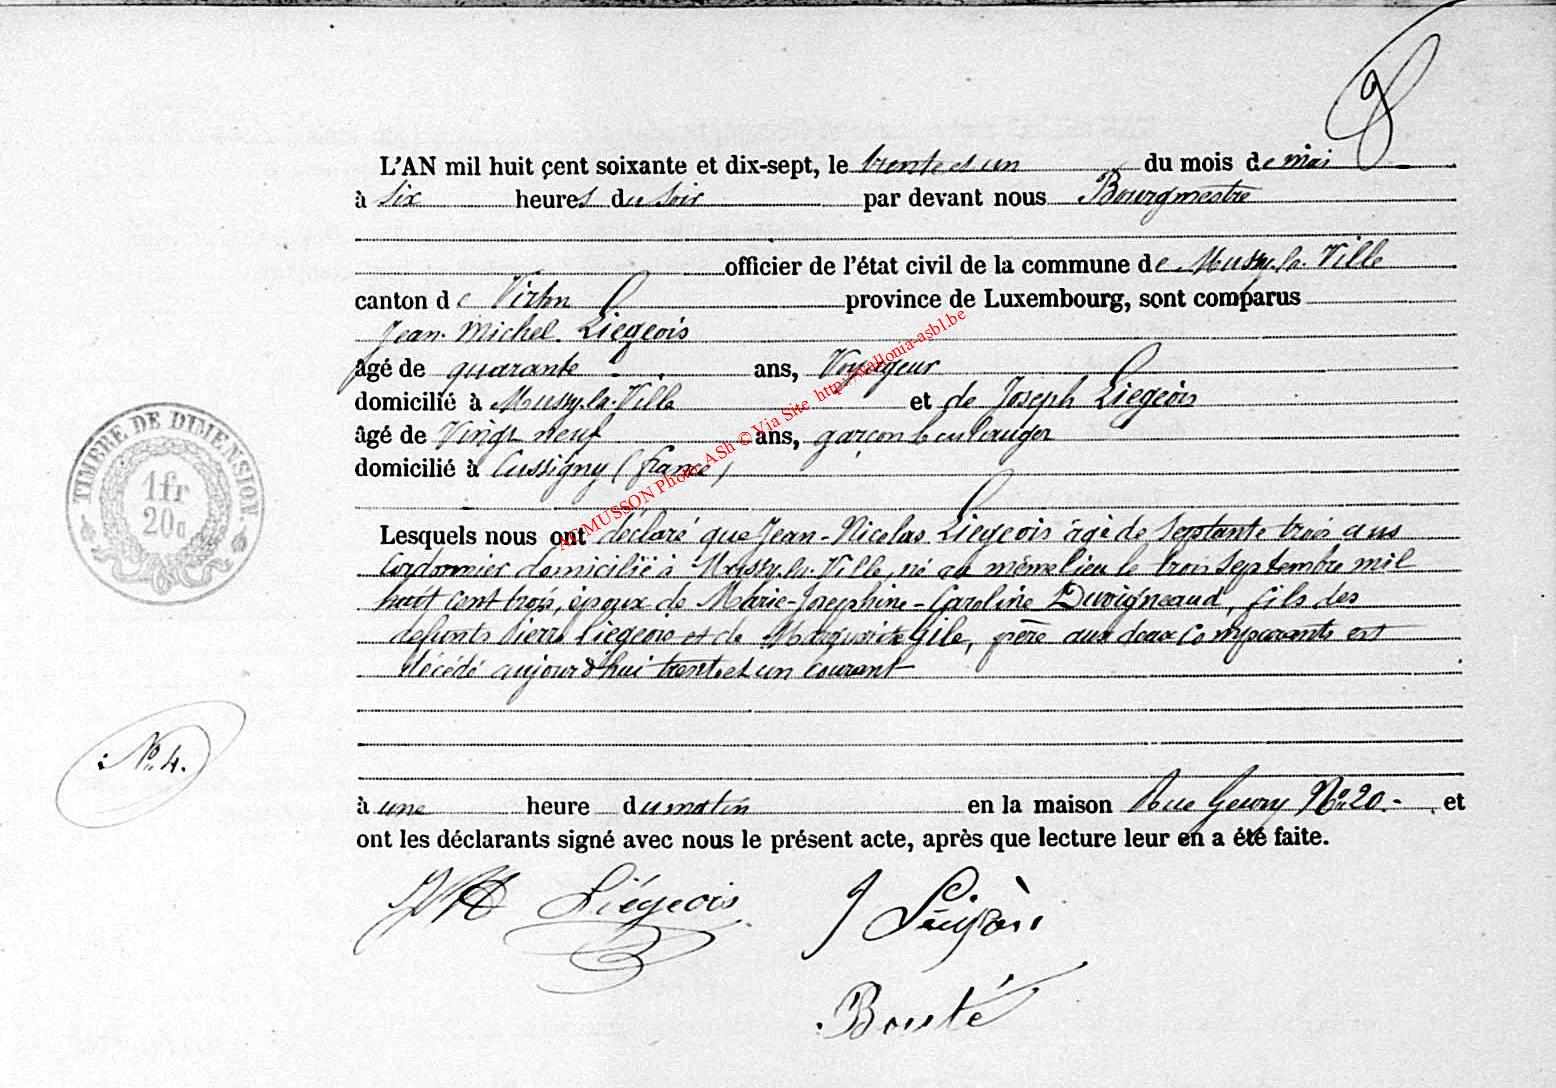 8
L'AN mil huit çent soixante et dix-sept, le trente et un du mois de mai
à six heures du soir par devant nous Bourgmestre
officier de l'état civil de la commune de Mussy-la-Ville
canton de Virton province de Luxembourg, sont comparus
Jean-Michel Liégeois
âgé de quarante ans, Voyageur
domicilié à Mussy-la-Ville et de Joseph Liégeois
âgé de Vingt neuf ans, garçon boulanger
domicilié à Cussigny (france)
Lesquels nous ont déclaré que Jean-Nicolas Liégeois âgé de septante trois ans
Cordonnier domicilié à Mussy-la-Ville, né au même lieu le trois septembre mil
huit cent trois, époux de Marie-Josephine-Caroline Duvigneaud, fils des
défunts Pierre Liégeois et de Marguerite Gile, père aux deux comparants est
décédé aujourd'hui trente et un courant
à une heure du matin en la maison Rue Gewry No 20.- et
ont les déclarants signé avec nous le présent acte, après que lecture leur en a été faite.
JM Liégeois J Liégeois
Bouté
TIMBRE DE DIMENSION
1fr
20c
No. 4.
AE MUSSON Photo ASh © Via Site http://wallonia-asbl.be